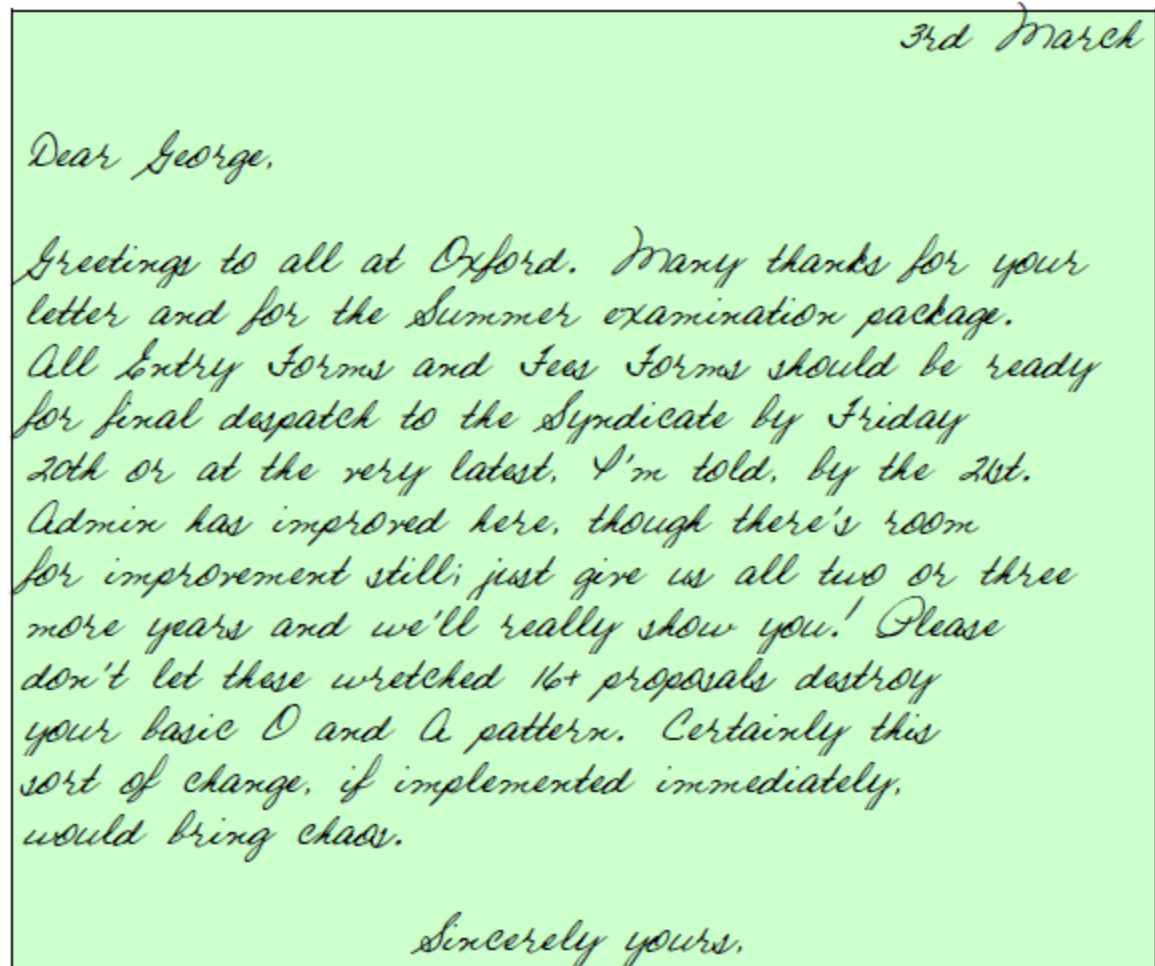 3rd March
Dear George,
Greetings to all at Oxford. Many thanks for your
letter and for the Summer examination package.
All Entry Forms and Fees Forms should be ready
for final despatch to the Syndicate by Friday
20th or at the very latest, I'm told, by the 21st.
Admin has improved here, though there's room
for improvement still; just give us all two or three
more years and we'll really show you! Please
don't let these wretched 16+ proposals destroy
your basic O and A pattern. Certainly this
sort of change, if implemented immediately,
would bring chaos.
Sincerely yours,